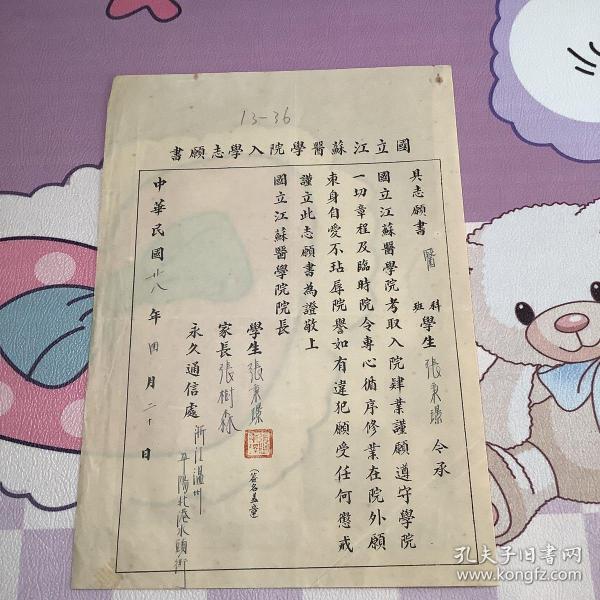 13-36
國立江蘇醫學院入學志願書
具志願書 醫 科班學生 張秉璪 今承
國立江蘇醫學院考取入院肄業謹願遵守學院
一切章程及臨時院令專心循序修業在院外願
束身自愛不玷辱院譽如有違犯願受任何懲戒
謹立此志願書為證敬上
國立江蘇醫學院院長
學生 張秉璪
家長 張樹森
(簽名蓋章)
永久通信處 浙江溫州
平陽北港水頭街
中華民國廿八年四月二十日
孔夫子旧书网
www.kongfz.com